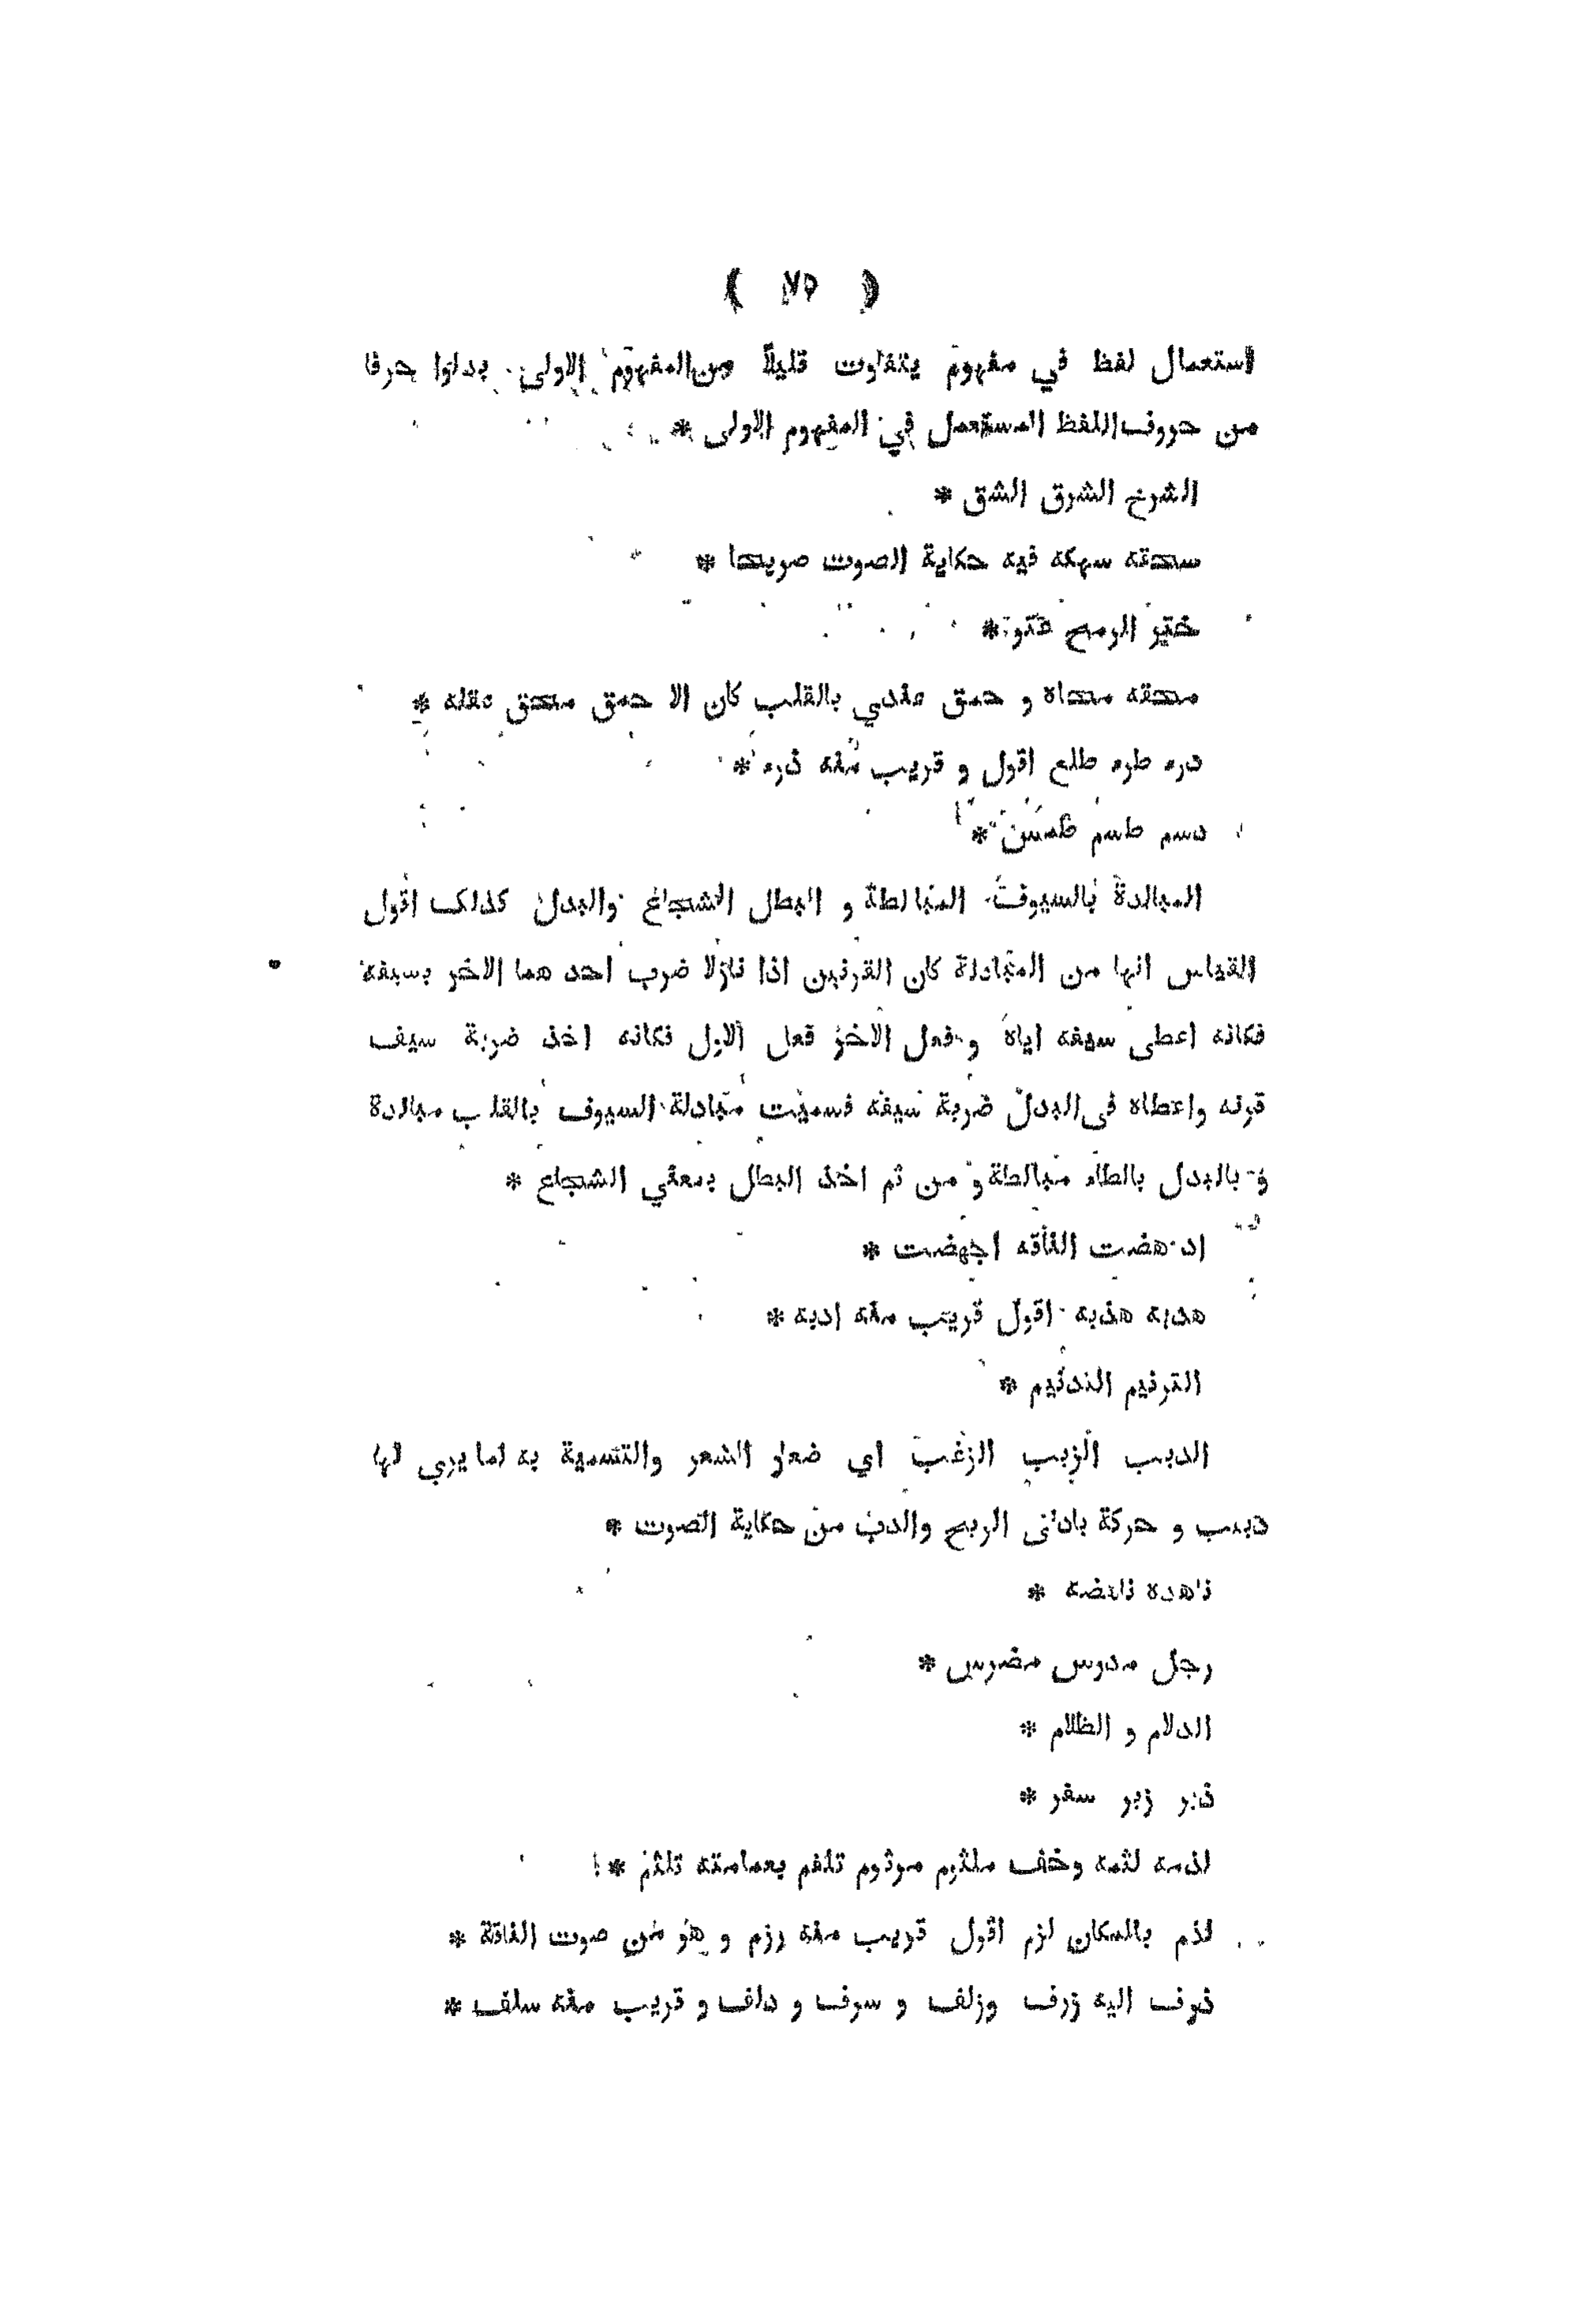 ( ٧٥ )
استعمال لفظ في مفهوم يتفاوت قليلاً من المفهوم الاولى بدلوا حرفا
من حروف اللفظ المستعمل في المفهوم الاولى *
الشرخ الشرق الشق *
سحقه سهكه فيه حكاية الصوت صريحا *
ختر الرمح
محقه محاه و حمق عندي بالقلب كان الا حمق محق عقله *
درء طرء طلع اقول و قريب منه ذرء *
دسم طسم طمس *
المبالدة بالسيوف المبالطة و البطل الشجاع والبدل كذلك اقول
القياس انها من المبادلة كان القرنين اذا نازلا ضرب احد هما الاخر بسيفه
فكانه اعطى سيفه اياه و فعل الاخر فعل الاول فكانه اخذ ضربة سيف
قرنه واعطاه فى البدل ضربة سيفه فسميت مبادلة السيوف بالقلب مبالدة
و بالبدل بالطاء مبالطة و من ثم اخذ البطل بمعني الشجاع *
اد هضت الناقه اجهضت *
هدبه هذبه اقول قريب منه ادبه *
الترنيم التدنيم *
الدبب الزبب الزغب اي صغار الشعر والتسمية به لما يري لها
دبيب و حركة بادنى الريح والدب من حكاية الصوت *
ناهده ناهضه *
رجل مدرس مضرس *
الدلام و الظلام *
ذبر زبر سفر *
لذمه لثمه وخف ملثوم مرثوم تلفم بعمامته تلثم *
لذم بالمكان لزم اقول قريب منه رزم و هو من صوت الناقة *
ذرف اليه زرف وزلف و سرف و دلف و قريب منه سلف *